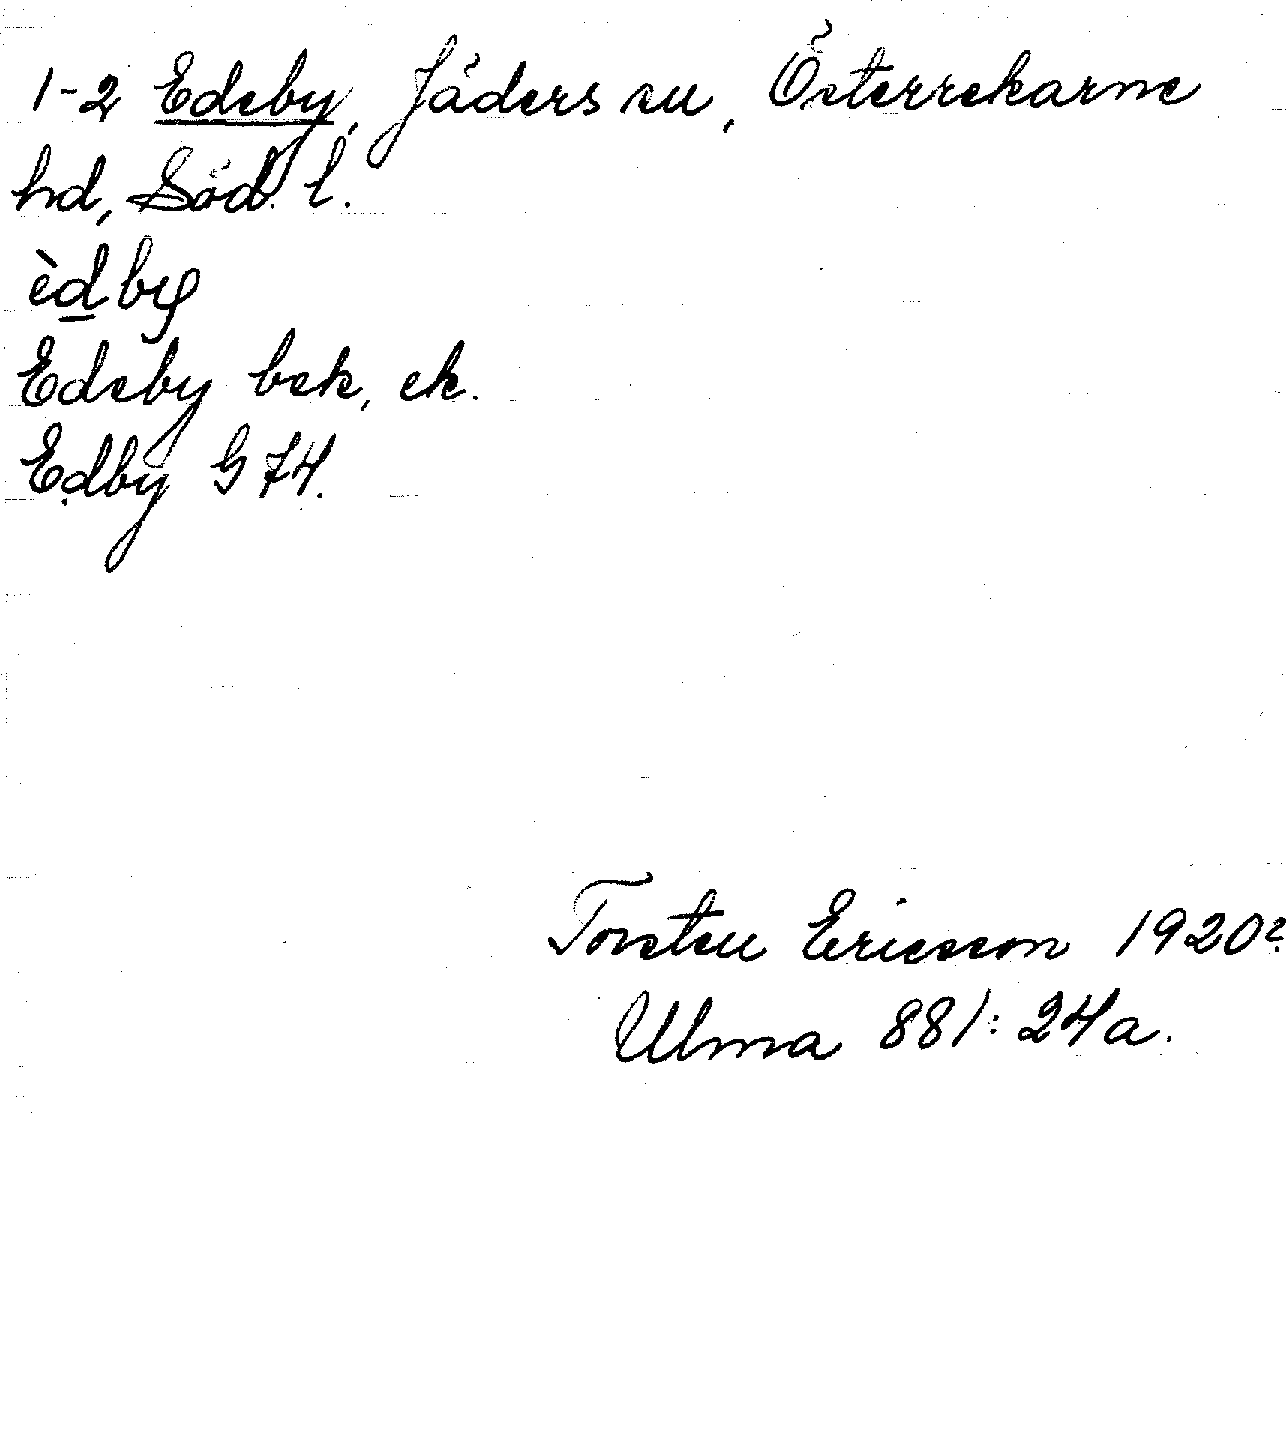 1-2 Edeby, Jäders sn, Österrekarne
hd, Söd. l.
èdby
Edeby bek, ek.
Edby G 74.
Torsten Ericsson 1920?
Ulma 881: 24a.